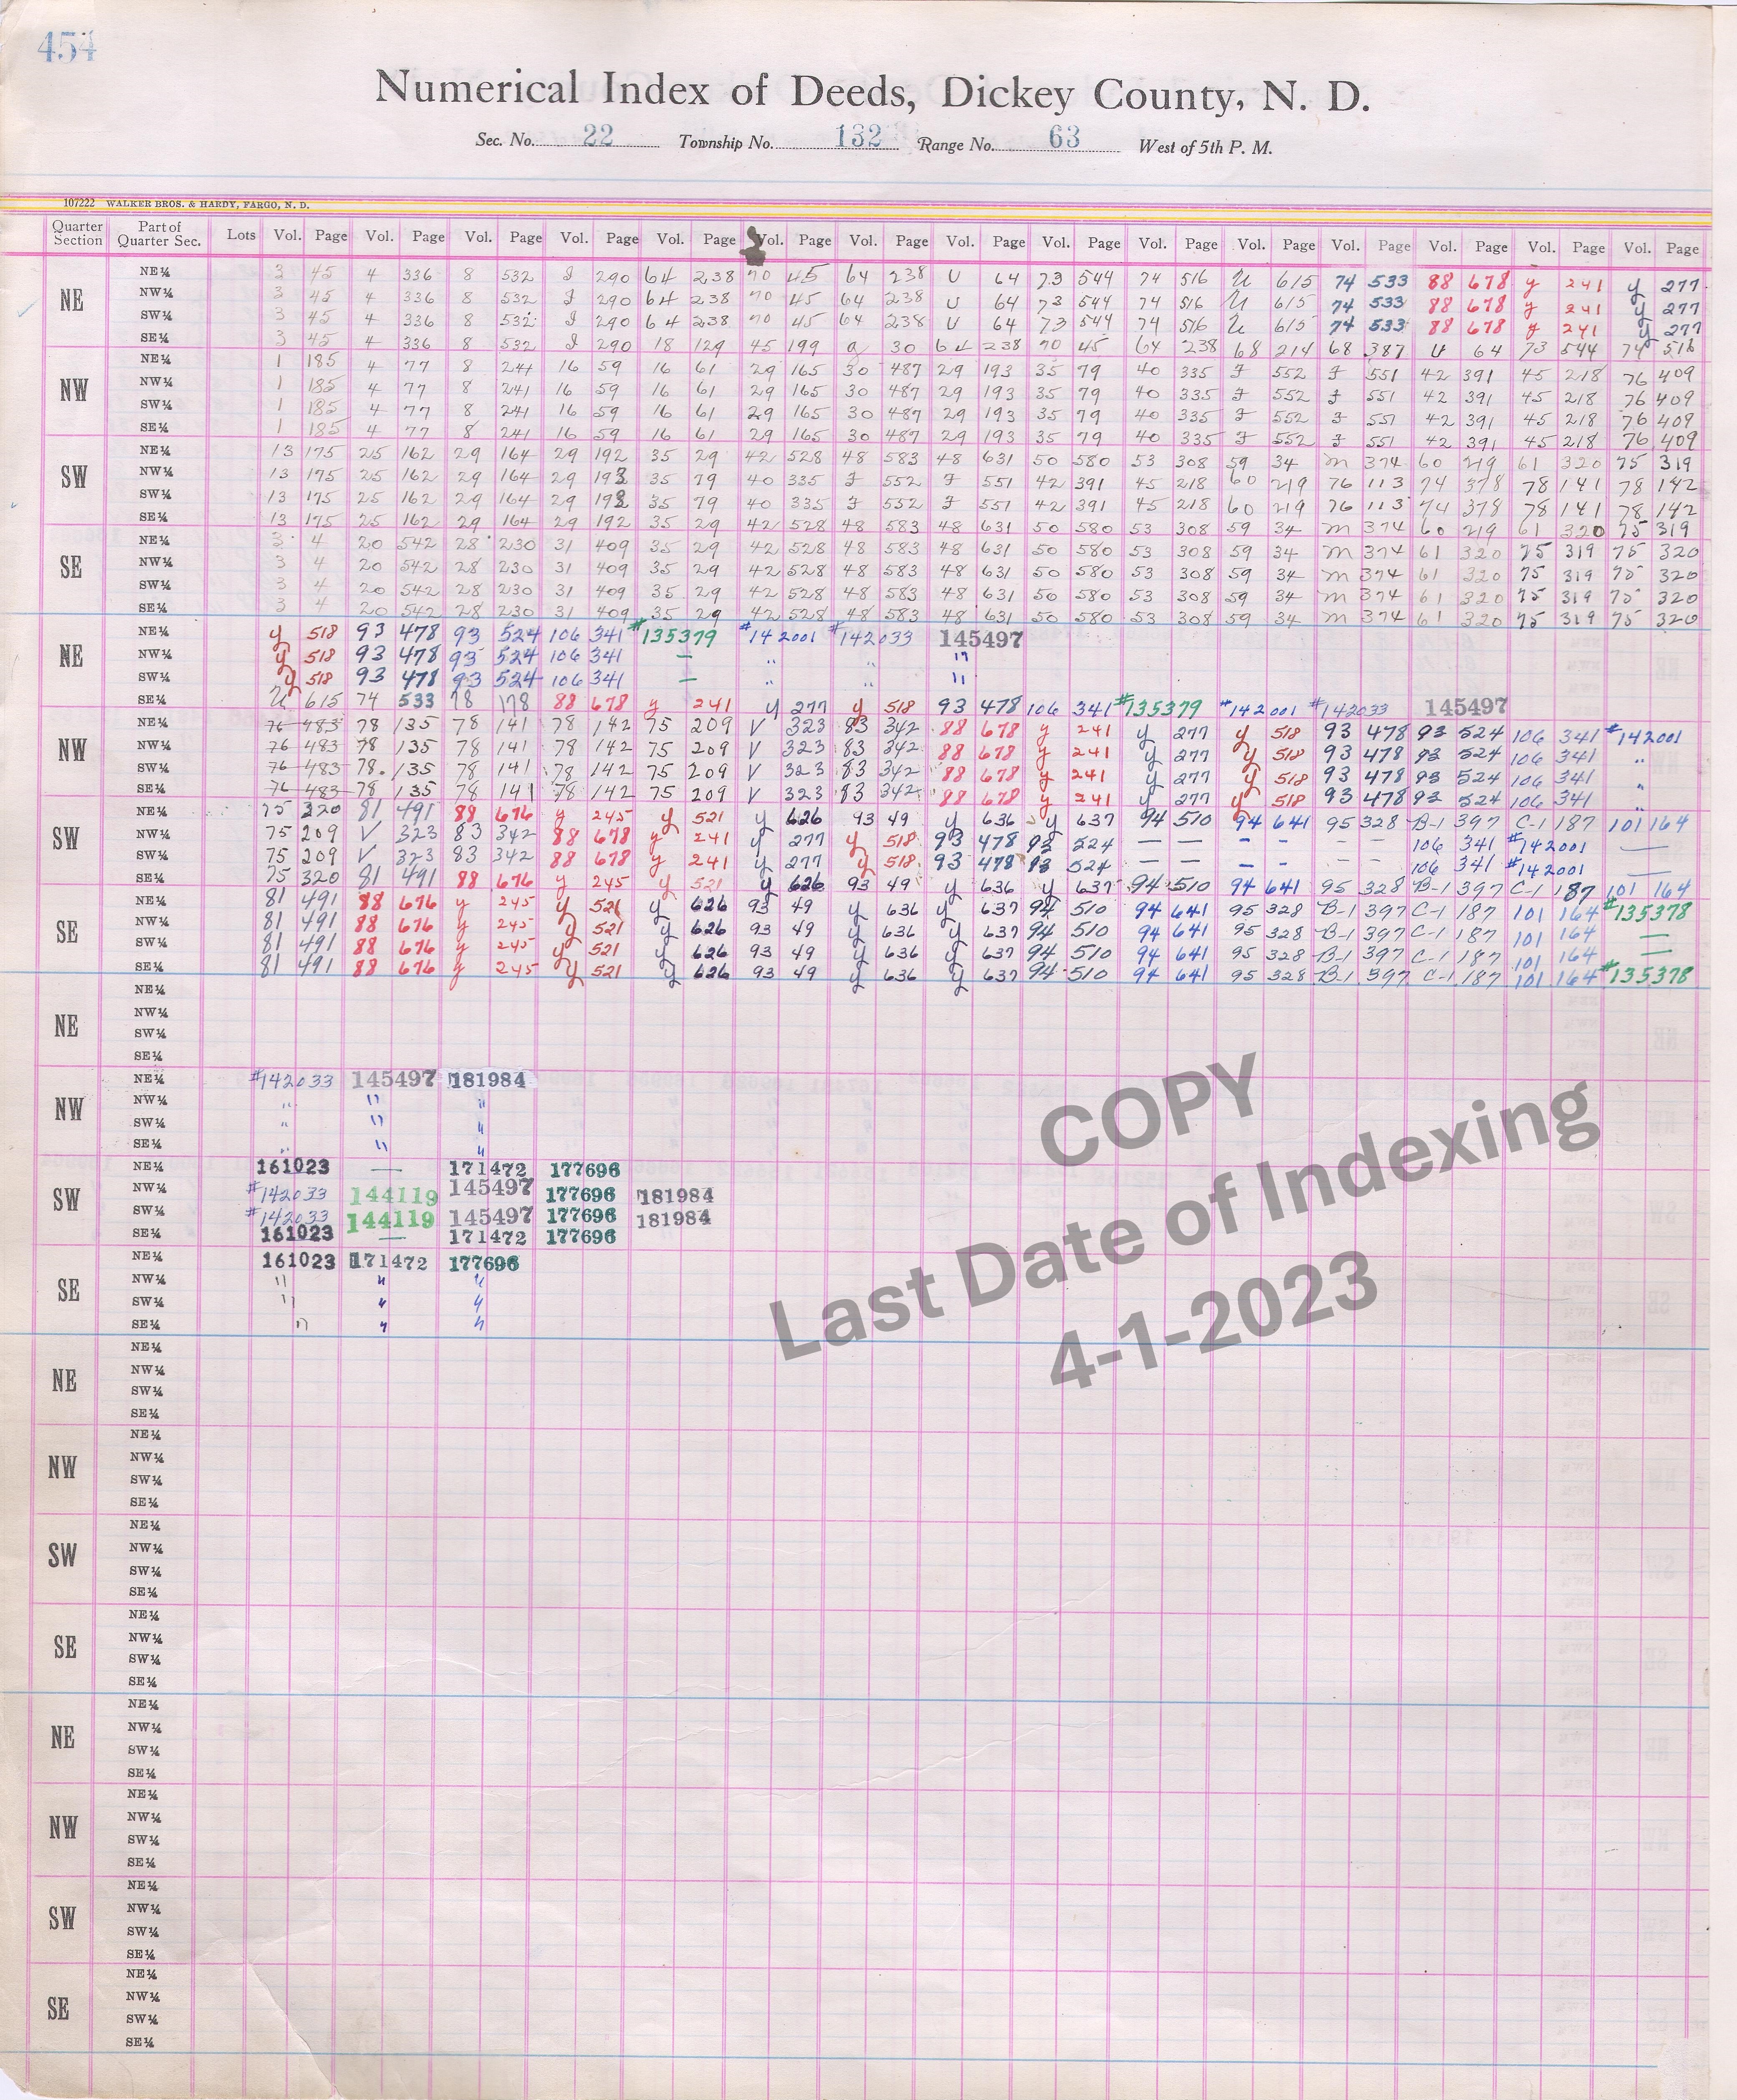 454
Numerical Index of Deeds, Dickey County, N. D.
Sec. No. 22 Township No. 132 Range No. 63 West of 5th P. M.
107222 WALKER BROS. & HARDY, FARGO, N. D.
Quarter Section Part of Quarter Sec. Lots Vol. Page Vol. Page Vol. Page Vol. Page Vol. Page Vol. Page Vol. Page Vol. Page Vol. Page Vol. Page Vol. Page Vol. Page Vol. Page Vol. Page Vol. Page
NE
NE¼ 3 45 4 336 8 532 J 290 64 238 70 45 64 238 U 64 73 544 74 516 U 615 74 533 88 678 y 241 y 277
NW¼ 3 45 4 336 8 532 J 290 64 238 70 45 64 238 U 64 73 544 74 516 U 615 74 533 88 678 y 241 y 277
SW¼ 3 45 4 336 8 532 J 290 64 238 70 45 64 238 U 64 73 544 74 516 U 615 74 533 88 678 y 241 y 277
SE¼ 3 45 4 336 8 532 J 290 18 129 45 199 a 30 64 238 70 45 64 238 68 214 68 387 U 64 73 544 74 516
NW
NE¼ 1 185 4 77 8 241 16 59 16 61 29 165 30 487 29 193 35 79 40 335 J 552 J 551 42 391 45 218 76 409
NW¼ 1 185 4 77 8 241 16 59 16 61 29 165 30 487 29 193 35 79 40 335 J 552 J 551 42 391 45 218 76 409
SW¼ 1 185 4 77 8 241 16 59 16 61 29 165 30 487 29 193 35 79 40 335 J 552 J 551 42 391 45 218 76 409
SE¼ 1 185 4 77 8 241 16 59 16 61 29 165 30 487 29 193 35 79 40 335 J 552 J 551 42 391 45 218 76 409
SW
NE¼ 13 175 25 162 29 164 29 192 35 29 42 528 48 583 48 631 50 580 53 308 59 34 M 374 60 219 61 320 75 319
NW¼ 13 175 25 162 29 164 29 193 35 79 40 335 J 552 J 551 42 391 45 218 60 219 76 113 74 378 78 141 78 142
SW¼ 13 175 25 162 29 164 29 193 35 79 40 335 J 552 J 551 42 391 45 218 60 219 76 113 74 378 78 141 78 142
SE¼ 13 175 25 162 29 164 29 192 35 29 42 528 48 583 48 631 50 580 53 308 59 34 M 374 60 219 61 320 75 319
SE
NE¼ 3 4 20 542 28 230 31 409 35 29 42 528 48 583 48 631 50 580 53 308 59 34 M 374 61 320 75 319 75 320
NW¼ 3 4 20 542 28 230 31 409 35 29 42 528 48 583 48 631 50 580 53 308 59 34 M 374 61 320 75 319 75 320
SW¼ 3 4 20 542 28 230 31 409 35 29 42 528 48 583 48 631 50 580 53 308 59 34 M 374 61 320 75 319 75 320
SE¼ 3 4 20 542 28 230 31 409 35 29 42 528 48 583 48 631 50 580 53 308 59 34 M 374 61 320 75 319 75 320
NE
NE¼ y 518 93 478 93 524 106 341 #135379 #142001 #142033 145497
NW¼ y 518 93 478 93 524 106 341 — " " "
SW¼ y 518 93 478 93 524 106 341 — " " "
SE¼ U 615 74 533 78 178 88 678 y 241 y 277 y 518 93 478 106 341 #135379 #142001 #142033 145497
NW
NE¼ 76 483 78 135 78 141 78 142 75 209 V 323 83 342 88 678 y 241 y 277 y 518 93 478 93 524 106 341 #142001
NW¼ 76 483 78 135 78 141 78 142 75 209 V 323 83 342 88 678 y 241 y 277 y 518 93 478 93 524 106 341 "
SW¼ 76 483 78 135 78 141 78 142 75 209 V 323 83 342 88 678 y 241 y 277 y 518 93 478 93 524 106 341 "
SE¼ 76 483 78 135 78 141 78 142 75 209 V 323 83 342 88 678 y 241 y 277 y 518 93 478 93 524 106 341 "
SW
NE¼ 75 320 81 491 88 676 y 245 y 521 y 626 93 49 y 636 y 637 94 510 94 641 95 328 B-1 397 C-1 187 101 164
NW¼ 75 209 V 323 83 342 88 678 y 241 y 277 y 518 93 478 93 524 — — — — — — 106 341 #142001 —
SW¼ 75 209 V 323 83 342 88 678 y 241 y 277 y 518 93 478 93 524 — — — — — — 106 341 #142001 —
SE¼ 75 320 81 491 88 676 y 245 y 521 y 626 93 49 y 636 y 637 94 510 94 641 95 328 B-1 397 C-1 187 101 164
SE
NE¼ 81 491 88 676 y 245 y 521 y 626 93 49 y 636 y 637 94 510 94 641 95 328 B-1 397 C-1 187 101 164 #135378
NW¼ 81 491 88 676 y 245 y 521 y 626 93 49 y 636 y 637 94 510 94 641 95 328 B-1 397 C-1 187 101 164 —
SW¼ 81 491 88 676 y 245 y 521 y 626 93 49 y 636 y 637 94 510 94 641 95 328 B-1 397 C-1 187 101 164 —
SE¼ 81 491 88 676 y 245 y 521 y 626 93 49 y 636 y 637 94 510 94 641 95 328 B-1 397 C-1 187 101 164 #135378
NE
NE¼
NW¼
SW¼
SE¼
NW
NE¼ #142033 145497 181984
NW¼ " " "
SW¼ " " "
SE¼ " " "
SW
NE¼ 161023 — 171472 177696
NW¼ #142033 144119 145497 177696 181984
SW¼ #142033 144119 145497 177696 181984
SE¼ 161023 — 171472 177696
SE
NE¼ 161023 171472 177696
NW¼ " " "
SW¼ " " "
SE¼ " " "
COPY
Last Date of Indexing
4-1-2023
NE
NE¼
NW¼
SW¼
SE¼
NW
NE¼
NW¼
SW¼
SE¼
SW
NE¼
NW¼
SW¼
SE¼
SE
NE¼
NW¼
SW¼
SE¼
NE
NE¼
NW¼
SW¼
SE¼
NW
NE¼
NW¼
SW¼
SE¼
SW
NE¼
NW¼
SW¼
SE¼
SE
NE¼
NW¼
SW¼
SE¼